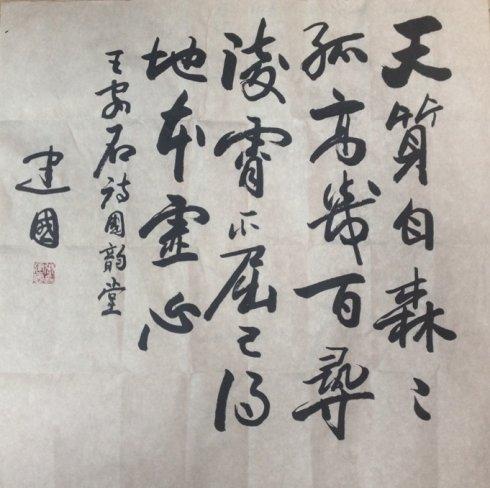 天質自森〻
孤高幾百尋
凌霄不屈己得
地本虛心
王安石詩國韵堂
建國